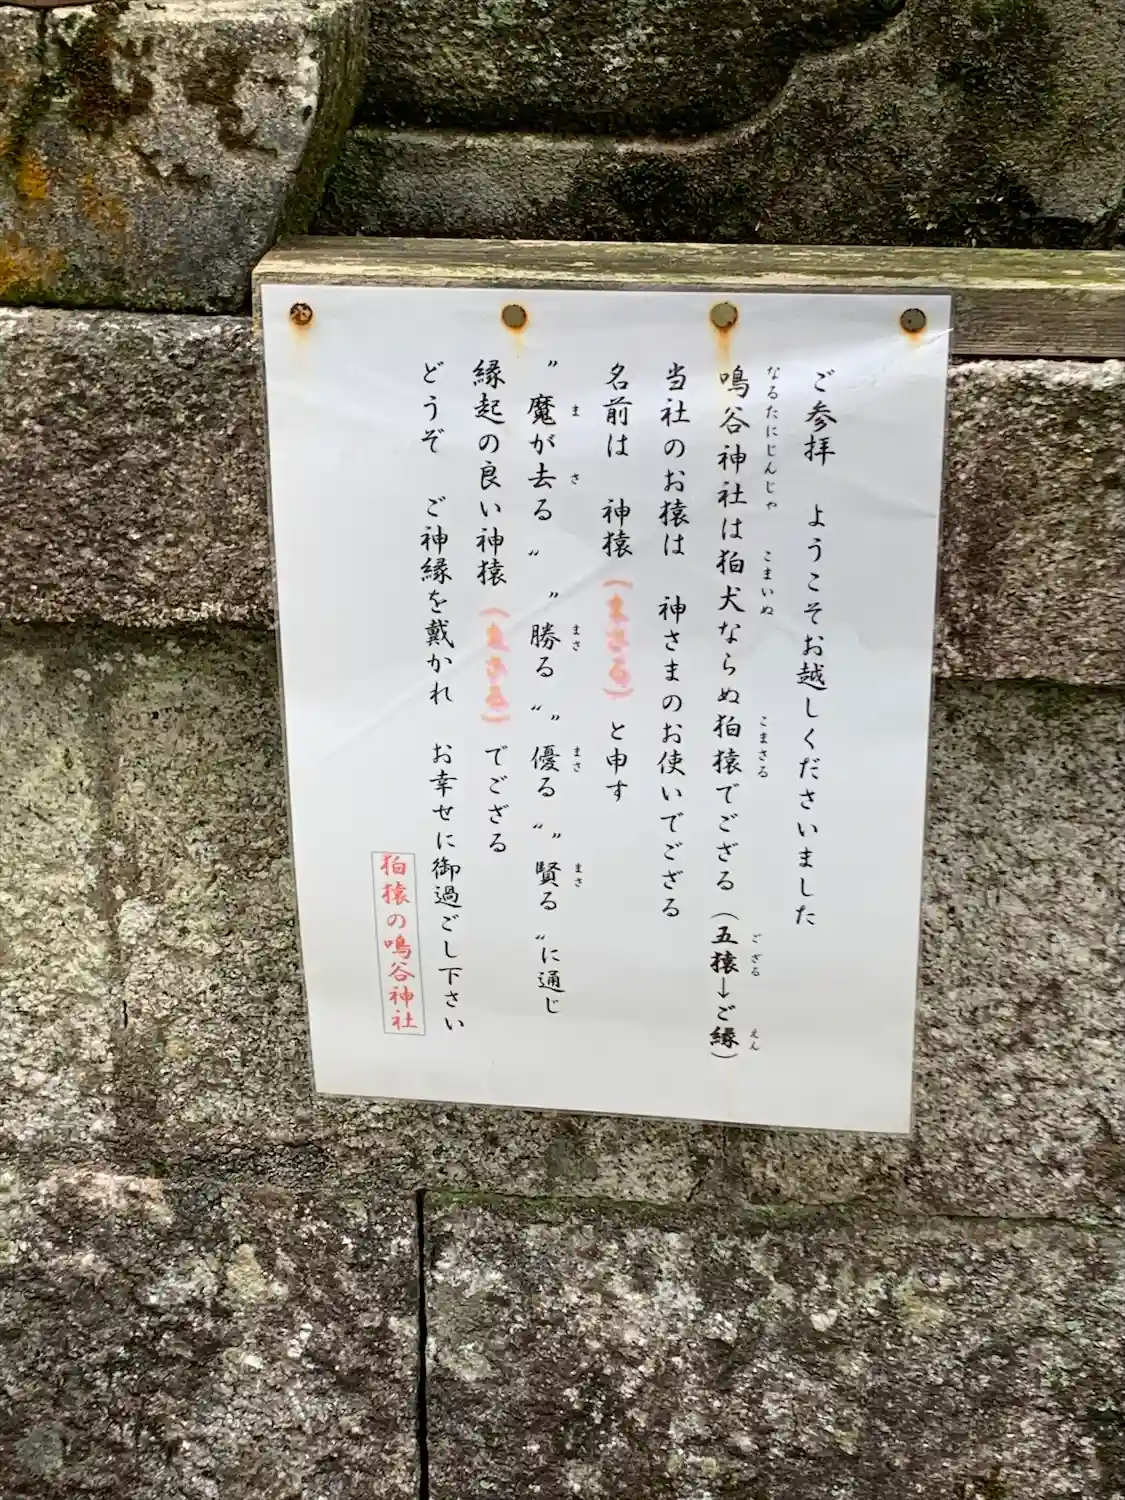 ご参拝　ようこそお越しくださいました
鳴谷神社は狛犬ならぬ狛猿でござる（五猿→ご縁）
なるたにじんじゃ　こまいぬ　こまさる　ござる　えん
当社のお猿は　神さまのお使いでござる
名前は　神猿（まさる）と申す
〝魔が去る〟〝勝る〟〝優る〟〝賢る〟に通じ
ま　さ　まさ　まさ　まさ
縁起の良い神猿（まさる）でござる
どうぞ　ご神縁を戴かれ　お幸せに御過ごし下さい
狛猿の鳴谷神社